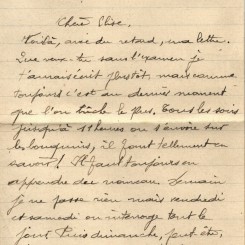 Cher Chou.
Voilà, avec du retard, ma lettre.
Que veux-tu sans l'examen je
t'aurais écrit plus tôt, mais comme
toujours c'est au dernier moment
que l'on bûche le plus. Tous les soirs
jusqu'à 11 heures on s'énerve sur
les bouquins, il faut tellement en
savoir! Il faut toujours en
apprendre de nouveau. Demain
je ne passe rien mais vendredi
et samedi on interroge tout le
jour. Puis dimanche, peut-être,